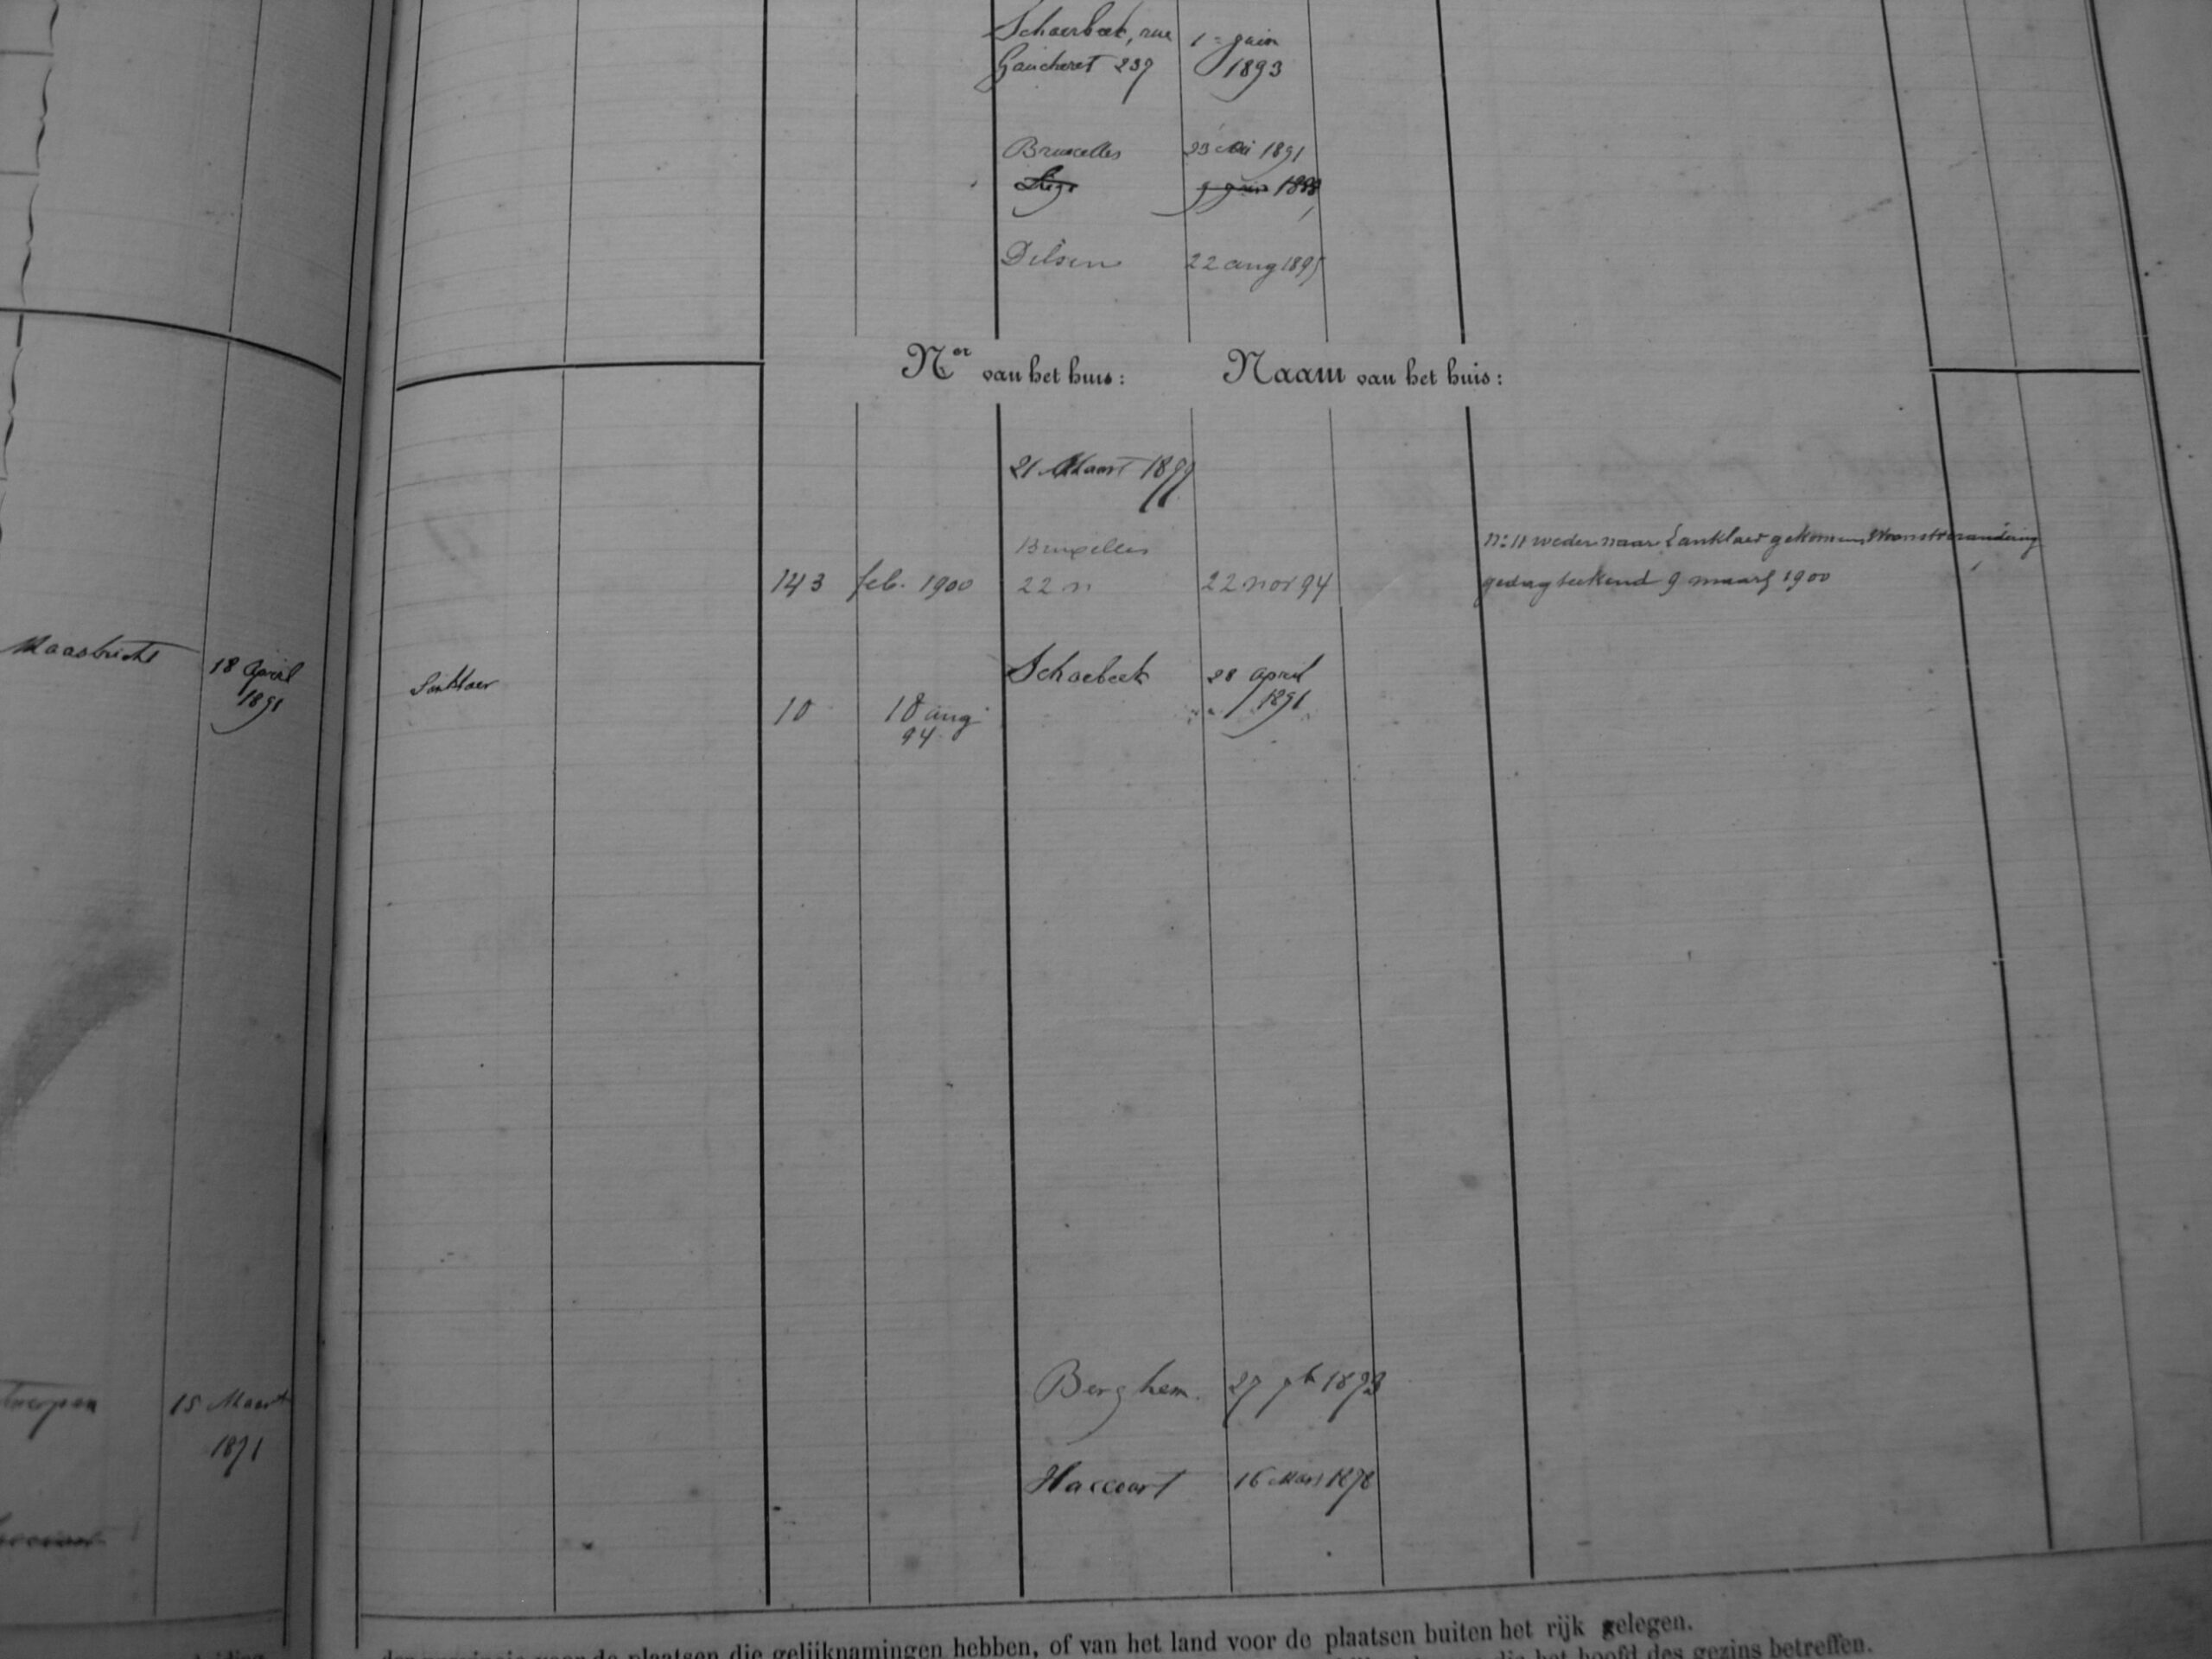 Schaerbeek, rue 1 = juin
Gaucheret 237 1893
Bruxelles 23 Mai 1891
Liège 9 juin 1888
Dilsen 22 aug 1895
Ner van het huis: Naam van het huis:
21 Maart 1899
Bruxelles
143 feb. 1900 22 n 22 nov 94
No 11 weder naar Lanklaer gekomen Woonstverandering
gedagteekend 9 maart 1900
Maastricht 18 April
1891
Lanklaer
Schaebeek 28 april
1891
10 18 aug
94
Berghem. 27 7br 1893
twerpen 15 Maart
1871
Haccourt 16 Mars 1878
voor de plaatsen die gelijknamingen hebben, of van het land voor de plaatsen buiten het rijk gelegen.
die het hoofd des gezins betreffen.